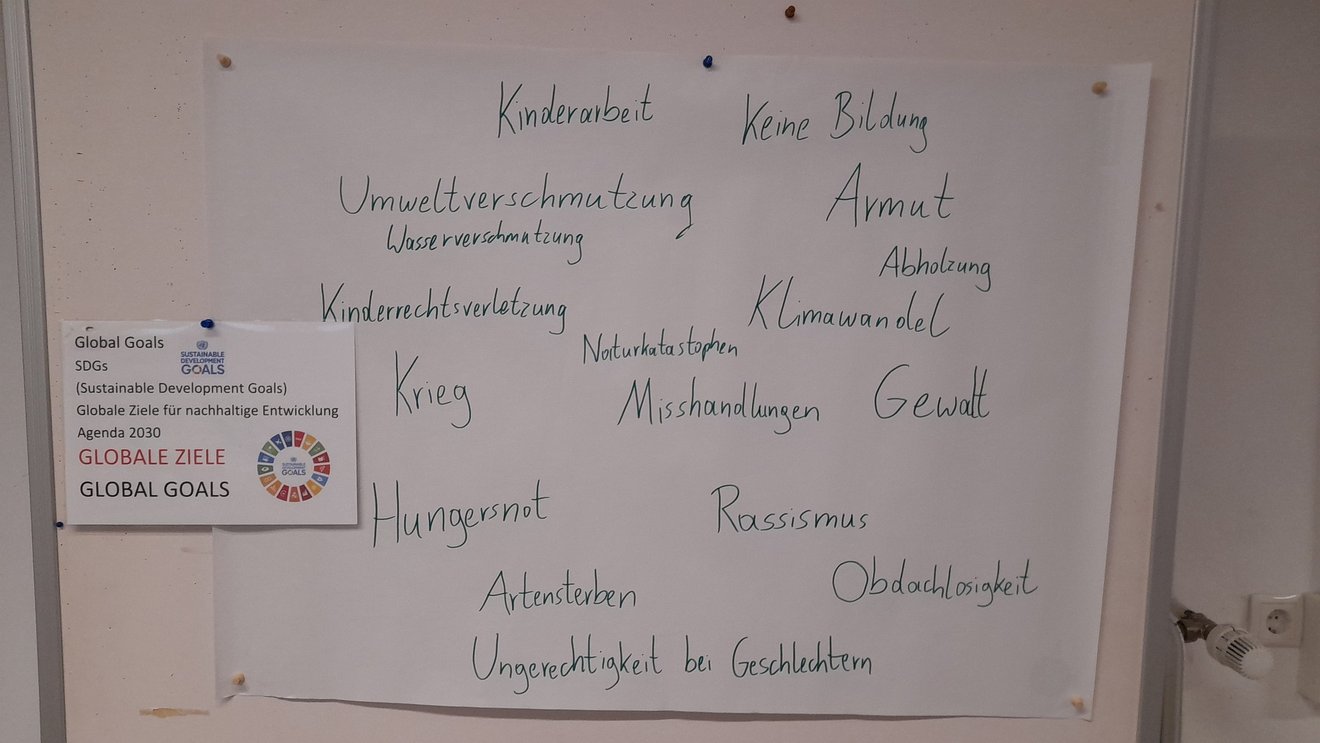 Kinderarbeit
Keine Bildung
Umweltverschmutzung
Armut
Wasserverschmutzung
Abholzung
Kinderrechtsverletzung
Klimawandel
Naturkatastophen
Krieg
Misshandlungen
Gewalt
Hungersnot
Rassismus
Artensterben
Obdachlosigkeit
Ungerechtigkeit bei Geschlechtern
Global Goals
SUSTAINABLE
DEVELOPMENT
GOALS
SDGs
(Sustainable Development Goals)
Globale Ziele für nachhaltige Entwicklung
Agenda 2030
GLOBALE ZIELE
GLOBAL GOALS
SUSTAINABLE
DEVELOPMENT
GOALS